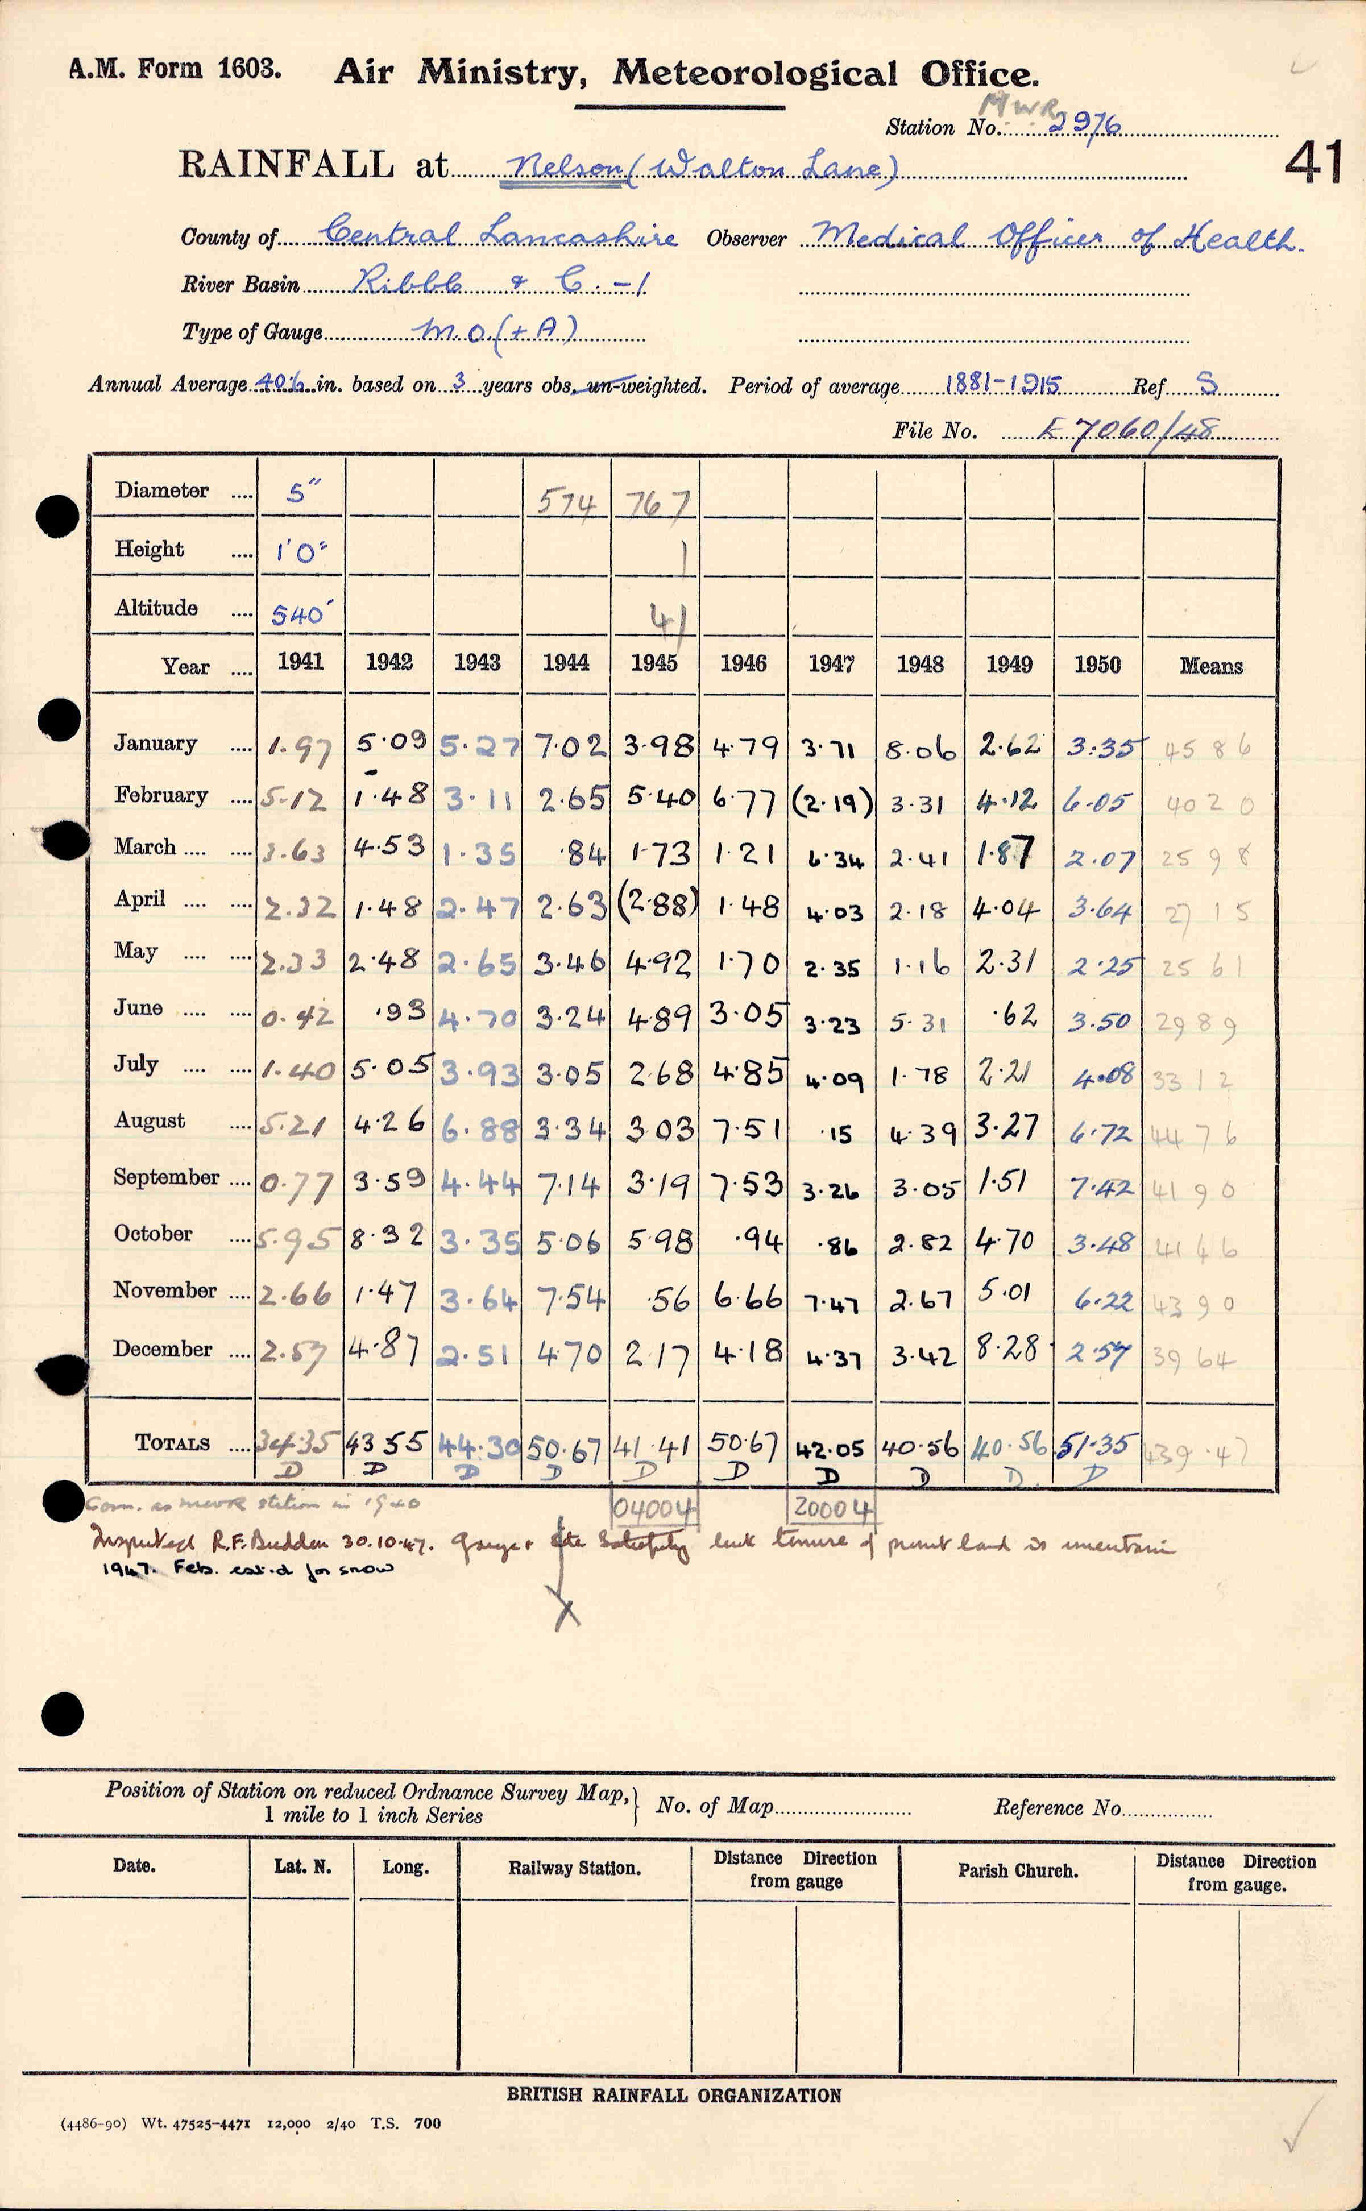 A.M. Form 1603. Air Ministry, Meteorological Office.
MWR
Station No. 2976
RAINFALL at Nelson (Walton Lane)
41
County of Central Lancashire Observer Medical Officer of Health.
River Basin Ribble & C. -1
Type of Gauge M.O. (+ A)
Annual Average 40.6 in. based on 3 years obs. un-weighted. Period of average 1881-1915 Ref S
File No. E 7060/48
Diameter .... 5" 574 767
Height .... 1'0" 1
Altitude .... 540' 41
Year .... 1941 1942 1943 1944 1945 1946 1947 1948 1949 1950 Means
January .... 1.97 5.09 5.27 7.02 3.98 4.79 3.71 8.06 2.62 3.35 45 86
February .... 5.12 1.48 3.11 2.65 5.40 6.77 (2.19) 3.31 4.12 6.05 40 20
March .... .... 3.63 4.53 1.35 .84 1.73 1.21 6.34 2.41 1.87 2.07 25 98
April .... .... 2.32 1.48 2.47 2.63 (2.88) 1.48 4.03 2.18 4.04 3.64 27 15
May .... .... 2.33 2.48 2.65 3.46 4.92 1.70 2.35 1.16 2.31 2.25 25 61
June .... .... 0.42 .93 4.70 3.24 4.89 3.05 3.23 5.31 .62 3.50 29 89
July .... .... 1.40 5.05 3.93 3.05 2.68 4.85 4.09 1.78 2.21 4.08 33 12
August .... 5.21 4.26 6.88 3.34 3.03 7.51 .15 4.39 3.27 6.72 44 76
September .... 0.77 3.59 4.44 7.14 3.19 7.53 3.26 3.05 1.51 7.42 41 90
October .... 5.95 8.32 3.35 5.06 5.98 .94 .86 2.82 4.70 3.48 41 46
November .... 2.66 1.47 3.64 7.54 .56 6.66 7.47 2.67 5.01 6.22 43 90
December .... 2.57 4.87 2.51 4.70 2.17 4.18 4.37 3.42 8.28 2.57 39 64
TOTALS .... 34.35 43 55 44.30 50.67 41.41 50.67 42.05 40.56 40.56 51.35 439.47
D D D D D D D D D D
Com. as MWR station in 1940 04004 20004
Inspected R.F. Budden 30.10.47. Gauge & site Satisfactory but tenure of present land is uncertain
1947. Feb. est.d for snow
X
Position of Station on reduced Ordnance Survey Map,
1 mile to 1 inch Series } No. of Map Reference No.
Date. Lat. N. Long. Railway Station. Distance Direction from gauge Parish Church. Distance Direction from gauge.
BRITISH RAINFALL ORGANIZATION
(4486-90) Wt. 47525-4471 12,000 2/40 T.S. 700